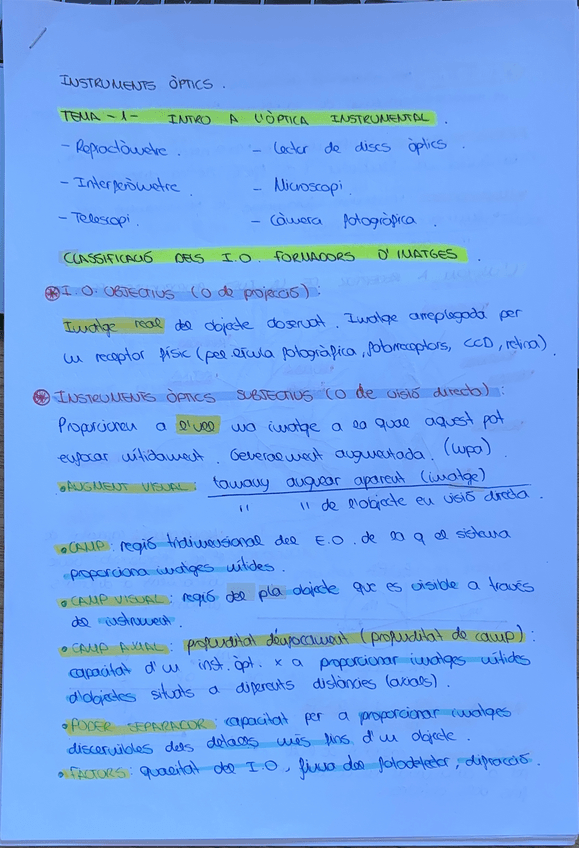 INSTRUMENTS ÒPTICS.
TEMA -1- INTRO A L'ÒPTICA INSTRUMENTAL.
- Refractòmetre. - Lector de discs òptics.
- Interferòmetre. - Microscopi.
- Telescopi. - Càmera fotogràfica.
CLASSIFICACIÓ DELS I.O. FORMADORS D'IMATGES.
I.O. OBJECTIUS (O de projecció):
Imatge real de l'objecte observat. Imatge arreplegada per
un receptor físic (pel·lícula fotogràfica, fotoreceptors, CCD, retina)
INSTRUMENTS ÒPTICS SUBJECTIUS (O de visió directa):
Proporcionen a l'ull una imatge a la qual aquest pot
enfocar nítidament. Generalment augmentada. (lupa)
• AUGMENT VISUAL: tamany angular aparent (imatge)
" " de l'objecte en visió directa.
• CAMP: regió tridimensional del E.O. de la q el sistema
proporciona imatges nítides.
• CAMP VISUAL: regió del pla objecte que es visible a través
de instrument.
• CAMP AXIAL: profunditat d'enfocament (profunditat de camp):
capacitat d'un inst. òpt. x a proporcionar imatges nítides
d'objectes situats a diferents distàncies (axials).
• PODER SEPARADOR: capacitat per a proporcionar imatges
discernibles dels detalls més fins d'un objecte.
• FACTORS: qualitat del I.O, finura del fotodetector, difracció.